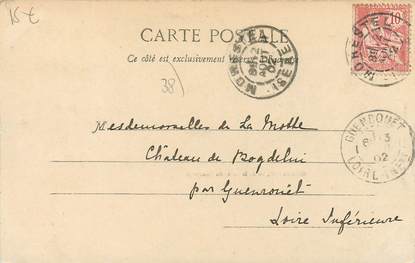 15 €
CARTE POSTALE
Ce côté est exclusivement
MORESTEL
2
AOUT
02
ISERE
10
MORESTEL
02
38
GUENROUET
3
02
LOIRE INFRE
Mesdemoiselles de La Motte
Château de Bogdelin
par Guenrouët
Loire Inférieure